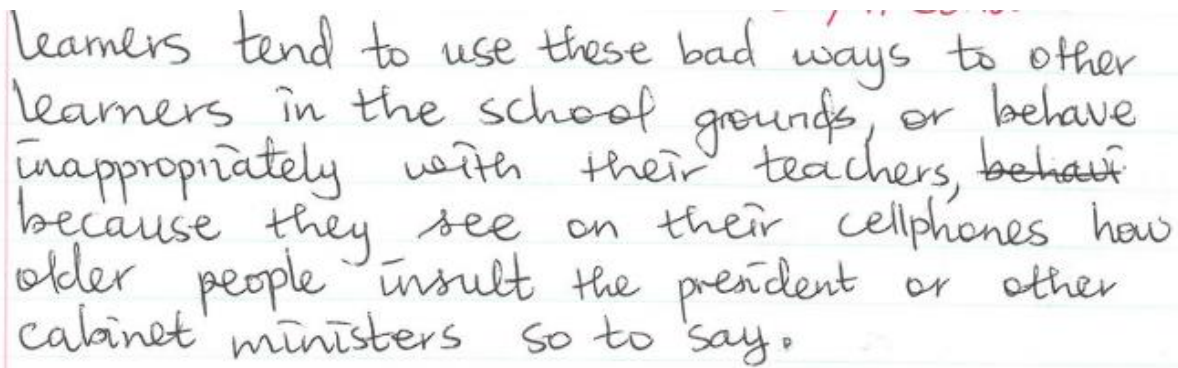 learners tend to use these bad ways to other
learners in the school grounds, or behave
inappropriately with their teachers, behavi
because they see on their cellphones how
older people insult the president or other
cabinet ministers so to say.